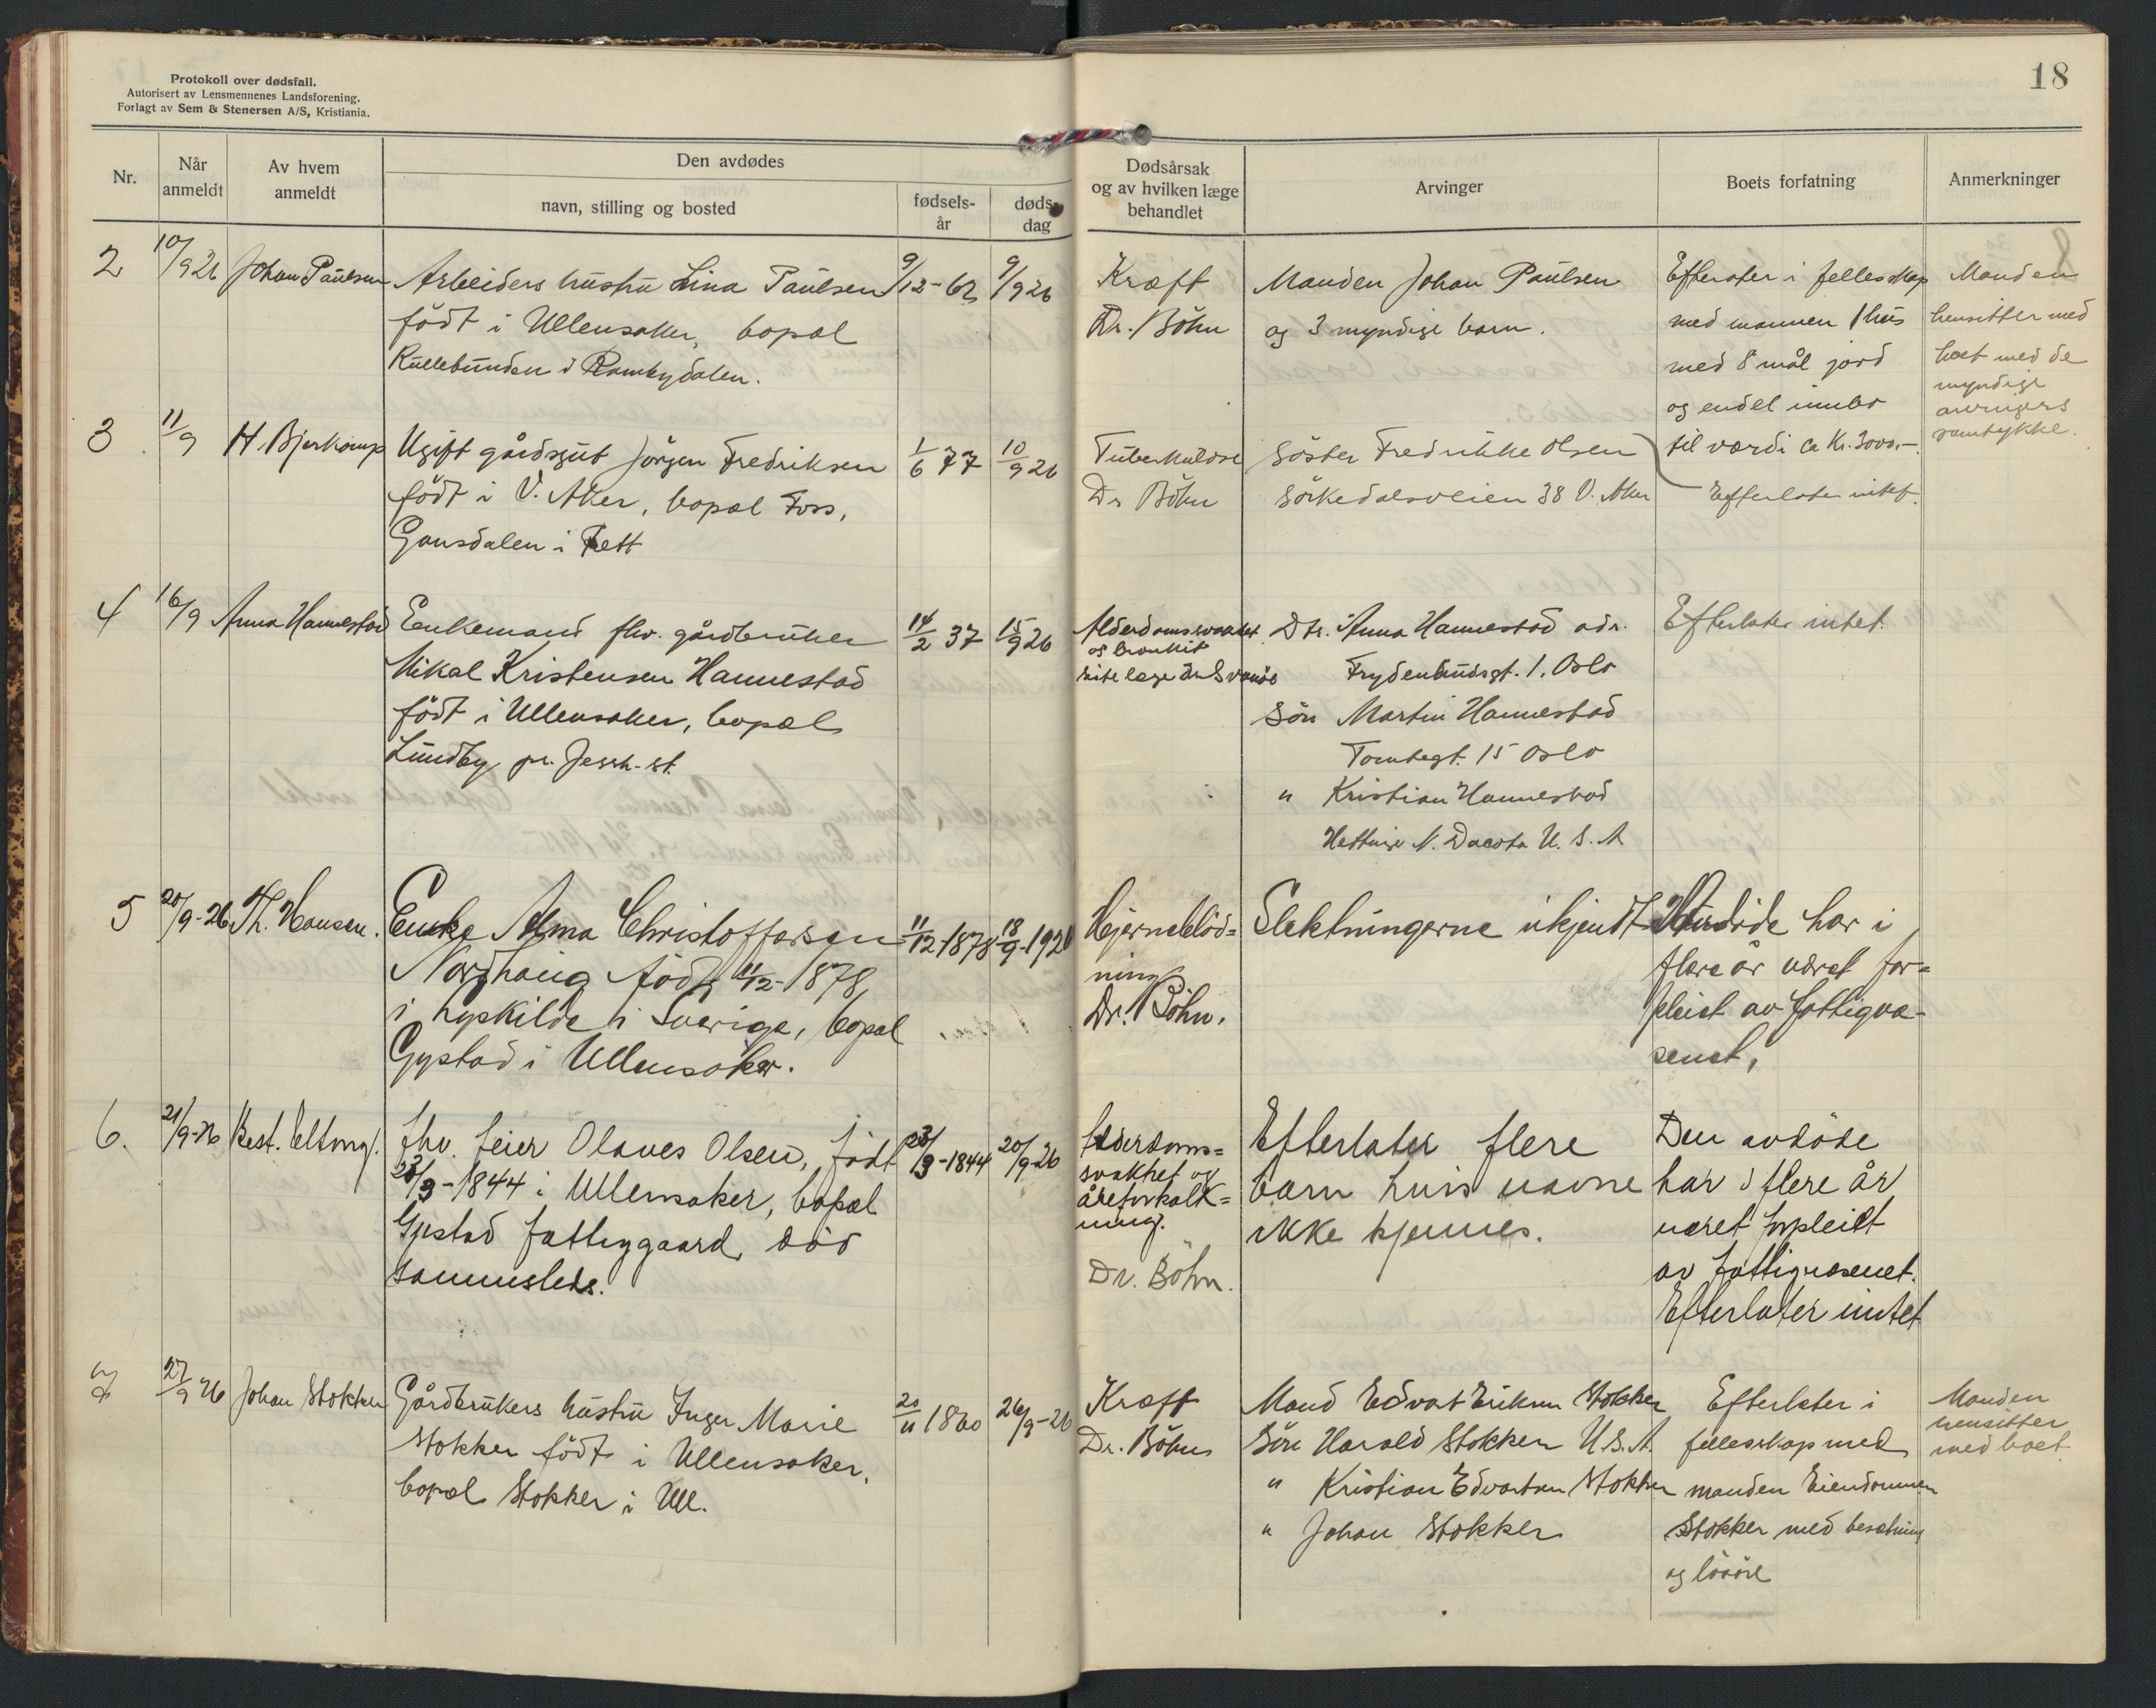 Protokoll over dødsfall.
Autorisert av Lensmennenes Landsforening.
Forlagt av Sem & Stenersen A/S, Kristiania.
18
Nr.
Når anmeldt
Av hvem anmeldt
Den avdødes
navn, stilling og bosted
fødsels-år
døds-dag
Dødsårsak og av hvilken læge behandlet
Arvinger
Boets forfatning
Anmerkninger
2
10/9 26
Johan Paulsen
Arbeiders hustru Lina Paulsen
født i Ullensaker, bopæl
i Rambydalen.
9/12-62
9/9 26
Kræft
Dr. Böhn
Manden Johan Paulsen
og 3 myndige barn.
Efterlater i fellesskap
med mannen 1 hus
med 8 mål jord
og endel innbo
til værdi ca Kr. 3000.-
Manden
hensitter med
boet med de
myndige
arvingers
samtykke.
3
11/9
H. Bjerkamp
Ugift gårdsgut Jörgen Fredriksen
født i V. Aker, bopæl Foss,
Gansdalen i Fett
1/6 77
10/9 26
Tuberkulose
Dr Böhn
Söster Fredrikke Olsen
Sörkedalsveien 38 V. Aker
Efterlater intet.
4
16/9
Anna Hannestad
Enkemand fhv. gårdbruker
Mikal Kristensen Hannestad
født i Ullensaker, bopæl
Lundby pr. Jessh. st.
14/2 37
15/9 26
Alderdomssvakhet
og bronkit
Dtr. Anna Hannestad adr.
Frydenlundsgt. 1. Oslo
Sön Martin Hannestad
Tomtegt. 15 Oslo
" Kristian Hannestad
N. Dacota U. S. A
Efterlater intet.
5
20/9-26
Th. Hansen.
Enke Alma Christoffersen
Nordhaug født 11/12-1878,
i Sverige, bopæl
Gystad i Ullensaker.
11/12-1878
18/9-1926
Hjerneblöd=
ning
Dr. Böhn.
Slektningerne ukjendt
har i
flere år været for=
pleiet av fattigvæ-
senet,
6.
21/9-26
Best. Eltong.
fhv. feier Olaves Olsen, født
23/9-1844 i Ullensaker, bopæl
Gystad fattiggaard, död
sammesteds.
23/9-1844
20/9-26
Alderdoms=
svakhet og
åreforkalk=
ning.
Dr. Böhn.
Efterlater flere
barn hvis navne
ikke kjennes.
Den avdöde
har i flere år
været forpleiet
av fattigvæsenet.
Efterlater intet
7
27/9 26
Johan Stokker
Gårdbrukers hustru Inger Marie
Stokker født i Ullensaker,
bopæl Stokker i Ull.
20/11 1860
26/9-26
Kræft
Dr. Böhn
Mand Edvart Eriksen Stokker
Sön Harald Stokker U.S.A.
" Kristian Edvartsen Stokker
" Johan Stokker
Efterlater i
fellesskap med
manden Eiendommen
Stokker med besætning
og lösöre
Manden
hensitter
med boet.